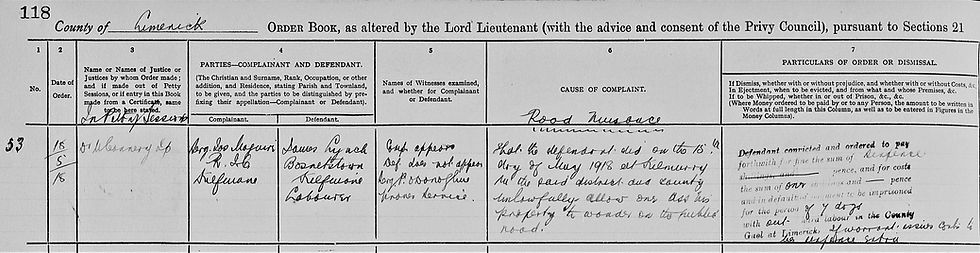 118
County of Limerick ORDER BOOK, as altered by the Lord Lieutenant (with the advice and consent of the Privy Council), pursuant to Sections 21
1 2 3 4 5 6 7
No.
Date of
Order.
Name or Names of Justice or
Justices by whom Order made;
and if made out of Petty
Sessions, or if entry in this Book
made from a Certificate, same
to be here stated.
In Petty Sessions
PARTIES—COMPLAINANT AND DEFENDANT.
(The Christian and Surname, Rank, Occupation, or other
addition, and Residence, stating Parish and Townland,
to be given, and the parties to be distinguished by pre-
fixing their appellation—Complainant or Defendant).
Complainant. Defendant.
Names of Witnesses examined,
and whether for Complainant
or Defendant.
CAUSE OF COMPLAINT.
Road Nuisance
PARTICULARS OF ORDER OR DISMISSAL.
If Dismiss, whether with or without prejudice, and whether with or without Costs, &c.
In Ejectment, when to be evicted, and from what and whose Premises, &c.
If to be Whipped, whether in or out of Prison, &c., &c.
(Where Money ordered to be paid by or to any Person, the amount to be written in
Words at full length in this Column, as well as to be entered in Figures in the
Money Columns).
53
18
5
18
Sergt Jos Maguire
R.I.C
Kilfinane
James Lynch
Bosnetstown
Kilfinane
Labourer
Comp appears
Def. does not appear
Sergt P. O'Donoghue
proves service.
That the defendant did on the 15th
day of May 1918 at
in the said district and county
unlawfully allow one ass his
property to wander on the public
road.
Defendant convicted and ordered to pay
forthwith for fine the sum of
pence, and for costs
the sum of one shillings and pence
and in default of payment to be imprisoned
for the period of 7 days
with out hard labour in the County
Gaol at Limerick. If warrant issues costs to
be sixpence extra